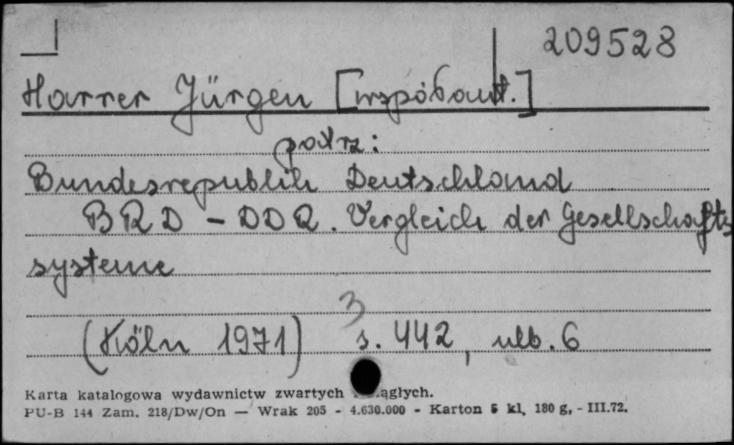 209528
Harrer Jürgen [współaut.]
patrz:
Bundesrepublik Deutschland
BRD - DDR. Vergleich der Gesellschafts
systeme
3
(Köln 1971) s. 442, nlb. 6
Karta katalogowa wydawnictw zwartych ągłych.
PU-B 144 Zam. 218/Dw/On — Wrak 205 - 4.630.000 - Karton 5 kl. 180 g, - III.72.